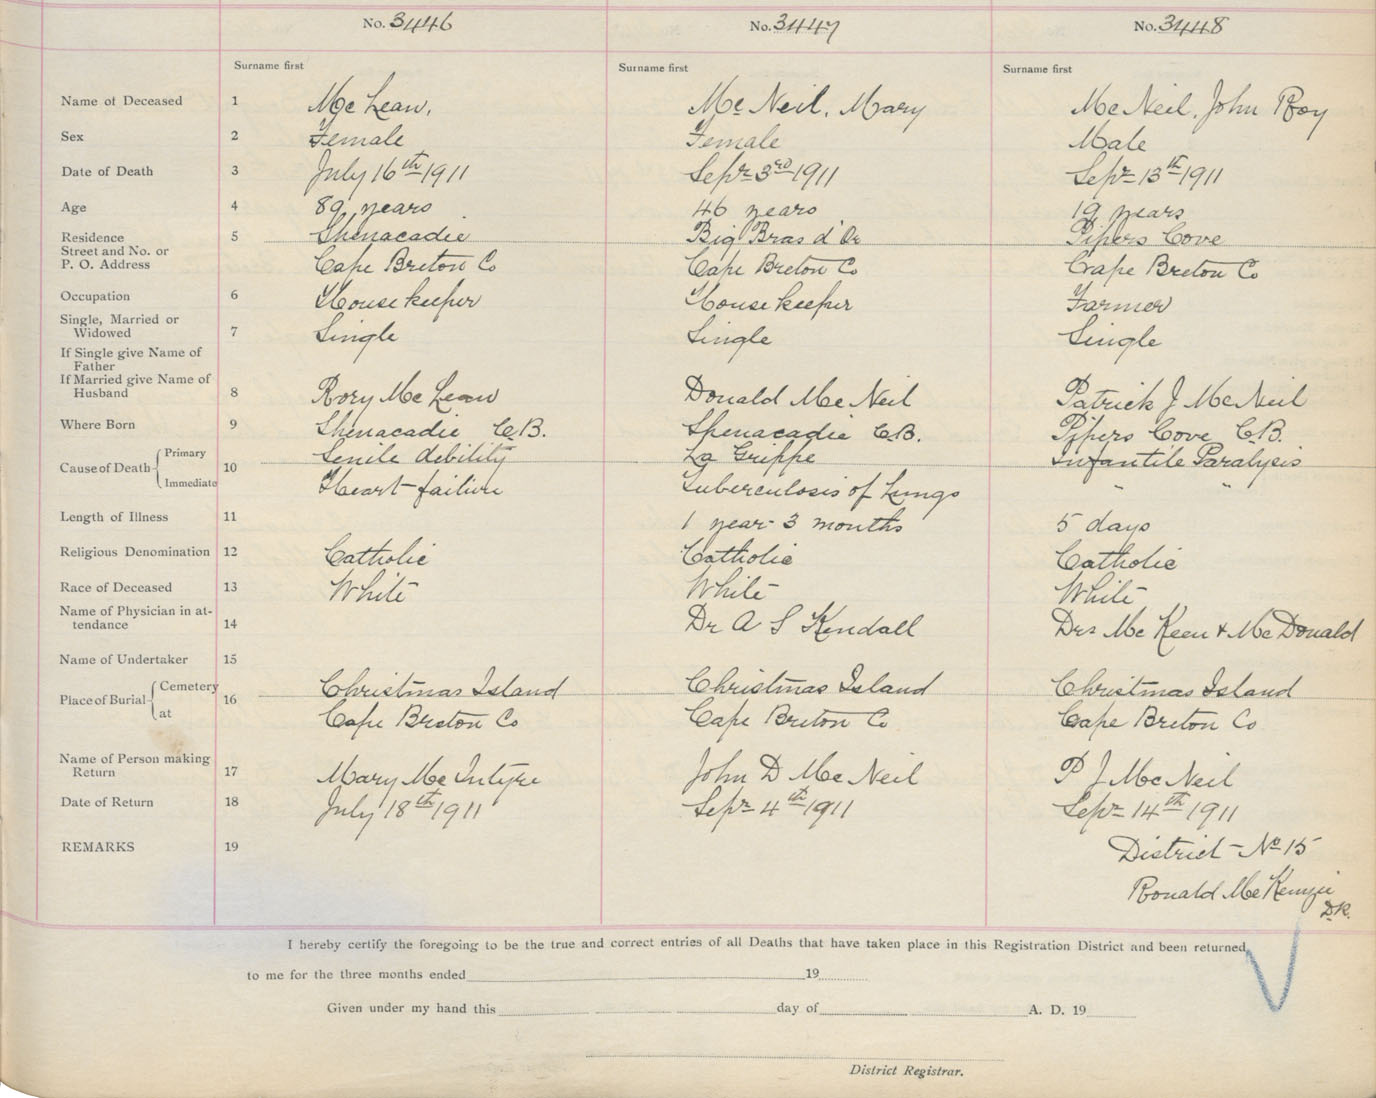 No. 3446 No. 3447 No. 3448
Surname first Surname first Surname first
Name of Deceased 1 Mc Lean, Mc Neil, Mary Mc Neil, John Roy
Sex 2 Female Female Male
Date of Death 3 July 16th 1911 Sepr 3rd 1911 Sepr 13th 1911
Age 4 89 years 46 years 19 years
Residence 5 Shenacadie Big Bras d'Or Pipers Cove
Street and No. or
P. O. Address Cape Breton Co Cape Breton Co Cape Breton Co
Occupation 6 House keeper House keeper Farmer
Single, Married or
Widowed 7 Single Single Single
If Single give Name of
Father
If Married give Name of
Husband 8 Rory Mc Lean Donald Mc Neil Patrick J McNeil
Where Born 9 Shenacadie C.B. Shenacadie C.B. Pipers Cove C.B.
Cause of Death Primary 10 Senile debility La Grippe Infantile Paralysis
Immediate Heart failure Tuberculosis of Lungs " "
Length of Illness 11 1 year 3 months 5 days
Religious Denomination 12 Catholic Catholic Catholic
Race of Deceased 13 White White White
Name of Physician in at-
tendance 14 Dr A S Kendall Drs Mc Keen & Mc Donald
Name of Undertaker 15
Place of Burial Cemetery 16 Christmas Island Christmas Island Christmas Island
at Cape Breton Co Cape Breton Co Cape Breton Co
Name of Person making
Return 17 Mary Mc Intyre John D Mc Neil P J McNeil
Date of Return 18 July 18th 1911 Sepr 4th 1911 Sepr 14th 1911
REMARKS 19 District No 15
Ronald Mc Kenzie
D.R.
I hereby certify the foregoing to be the true and correct entries of all Deaths that have taken place in this Registration District and been returned
to me for the three months ended 19
Given under my hand this day of A. D. 19
District Registrar.